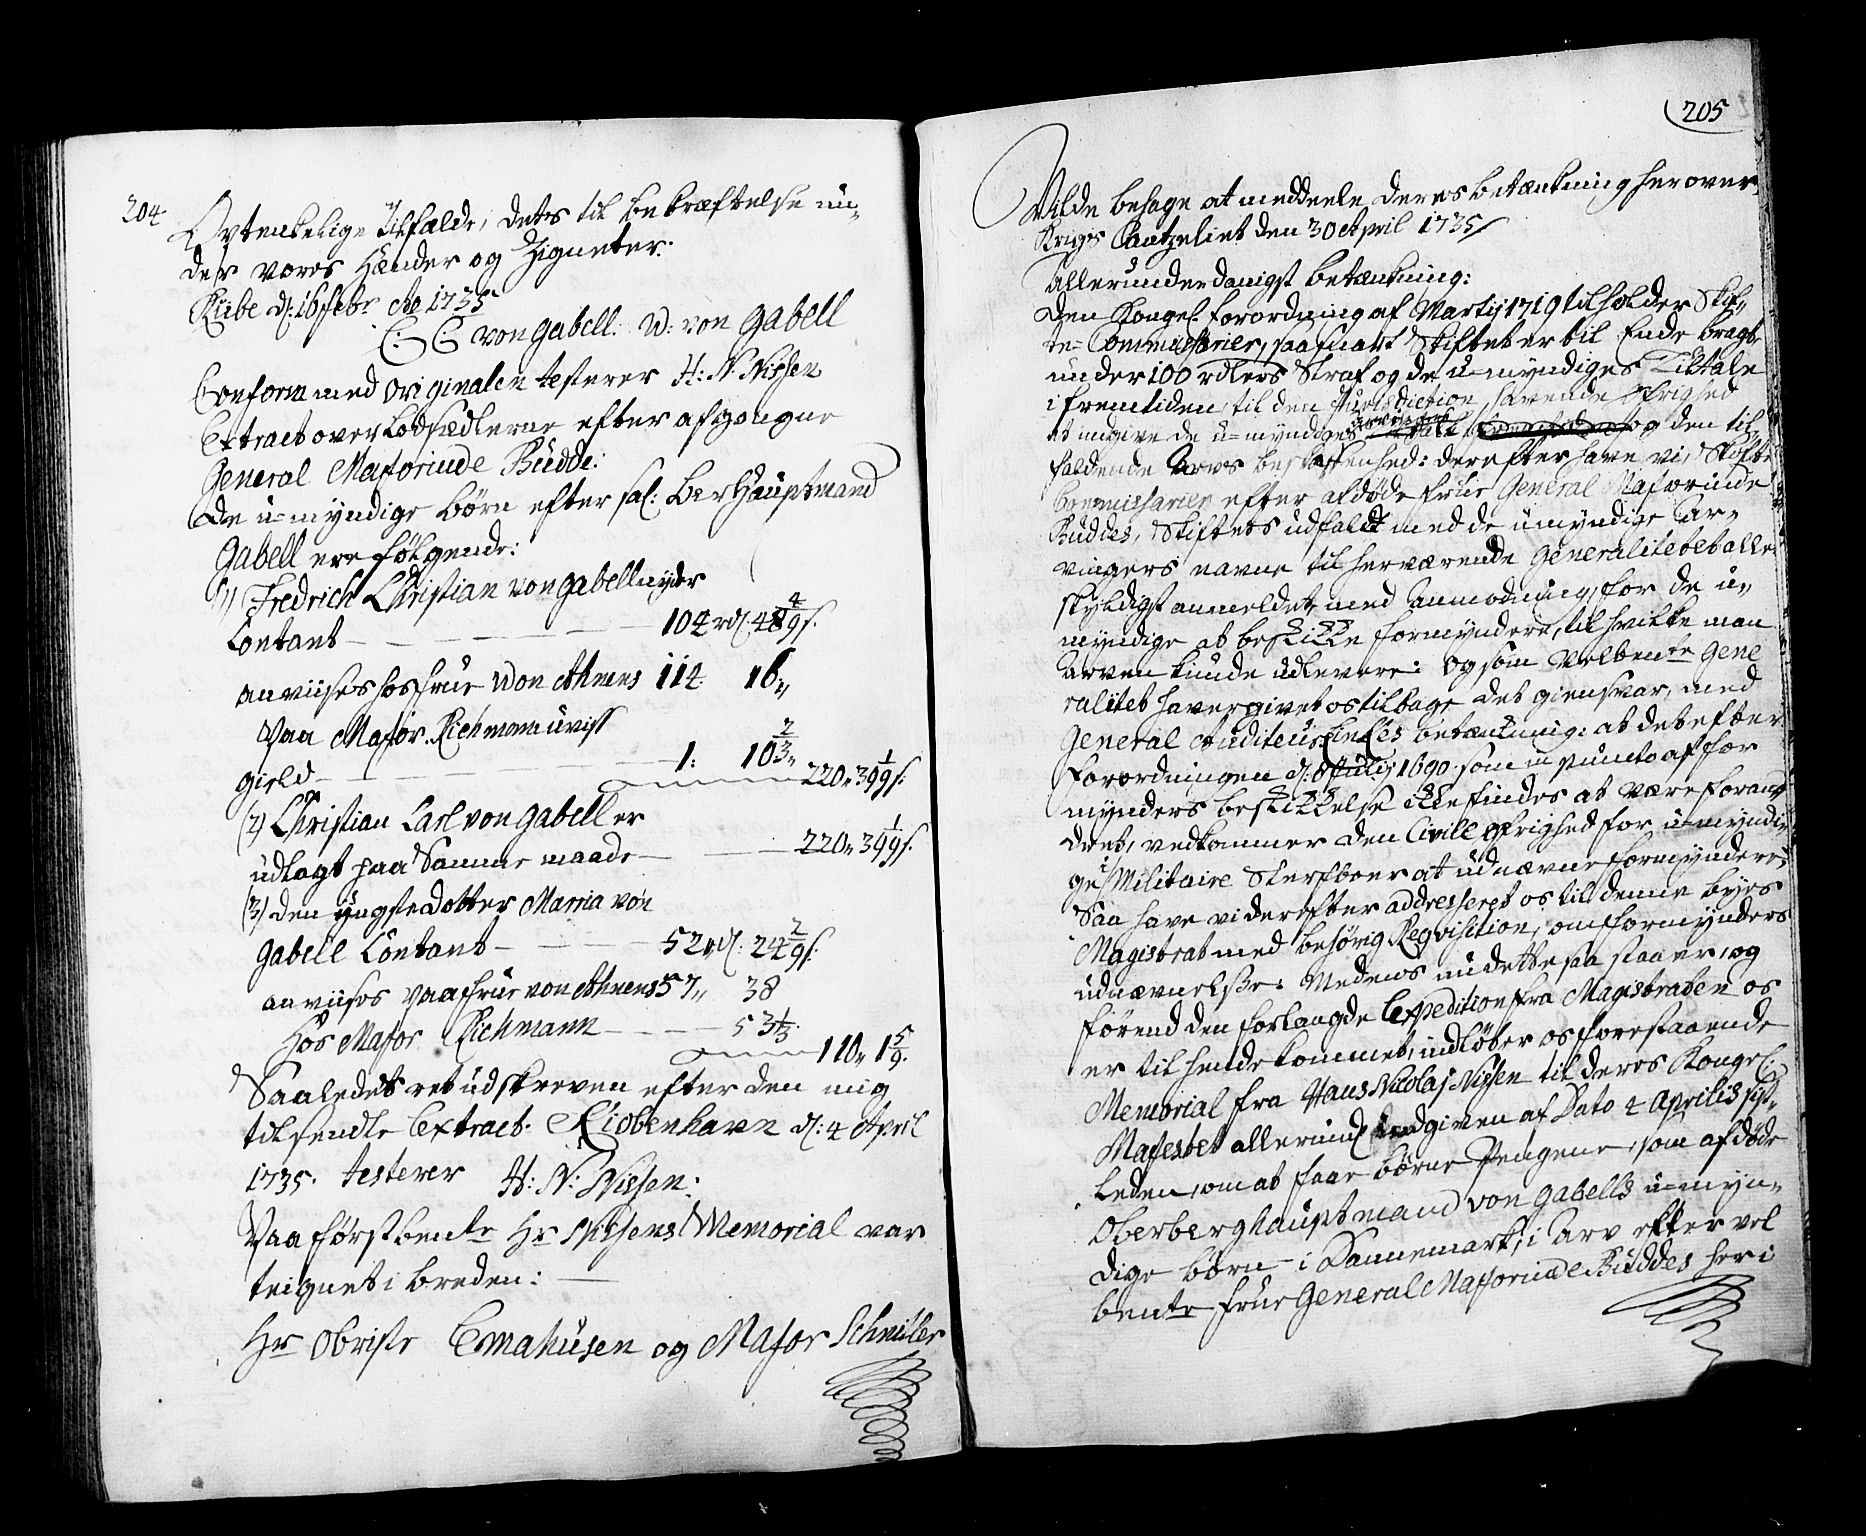 204
Øytenkelige Tilfælde, dets til bekræftelse un-
der vores Hænder og Zigneter.
Riibe d: 16 febr: Ao 1735
C: S von Gabell. U: von Gabell
Conform med Originalen testerer H: N: Nissen
Extract over Lodsædlerne efter afgangne
General Majorinde Büdde:
De u-myndige børn efter sal: Berghauptmand
Gabell ere følgende:
1) Fredrich Christian von Gabell nyder
Contant 104 rd: 48 4/9 s.
anviises hos frue von Ahnens 114 16 „
Paa Major Richmann uviss
gield 1: 10 2/3 „
220 „ 39 1/9 s:
(2) Christian Carl von Gabell er
udlagt paa Samme maade 220 „ 39 1/9 s.
(3) den yngste Dotter Marria von
Gabell Contant 52 rd: 24 2/9 s:
anviises paa frue von Ahnens 57 „ 38
Hos Major Richmann 53 1/3.
110 „ 1 5/9.
Saaledes ret udskreven efter den mig
tilsendte Extract. Kiøbenhavn d: 4 April
1735. testerer H: N: Nissen:
Paa førstbente Hr Nissens Memorial var
teignet i breden:
Hr Obriste Emahusen og Major Schmiler
205
Vilde behage at meddeele deres betænkning herover.
Krigs Cantzeliet den 30 April 1735/
Allerunderdanigst betænkning:
Den Kongel: forordning af Martij 1719 tilholder Skif-
te-Commissarier, saa snart Skiftet er til Ende bragt,
under 100 rdlers Straf og de u-myndiges Tiltale
i fremtiden, til den Jurisdiction havende Øfrighed
at angive de u-myndiges og den til
faldende Arvs beskaffenhed: derefter have vi, Skifte
Commissarier efter afdøde frue General Majorinde
Büddes, Skiftets udfald med de umyndige Ar-
vingers navne til herværende Generalitetet aller
skyldigst anmeldet, med Anmodning, for de u-
myndige at beskikke formyndere, til hvilke man
Arven kunde udlevere: og som Velbente Gene
ralitet haver givet os tilbage det giensvar, med
General Auditeur betænkning: at det efter
forordningen d: 8 Julij 1690. som in puncto af for
mynders beskikkelse ikke findes at være forand-
dret, vedkommer den Civile Øfrighed for u-myndi-
ge Militaire Sterfboer at udnævne formyndere:
Saa have vi derefter addresseret os til denne byes
Magistrat med behørig Reqvisition, om formynders
udnævnelse: Medens nu dette saa staaer, og
førend den forlangde Expedition fra Magistraten os
er til hende kommet, indløber os forestaaende
Memorial fra Hans Nicolaj Nissen til deres Kongel:
Majestet allerund: indgiven af Dato 4 Aprilis sist-
leden, om at faae børne Pengene, som afdøde
Oberberghauptmand von Gabells u-myn-
dige børn i Dannemark, i Arv efter vel
bente frue General Majorinde Büddes her i